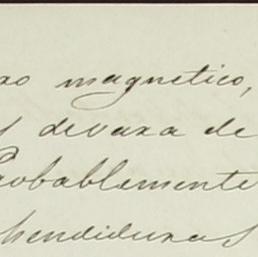 magnetico,
devara de
Probablemente
hendiduras